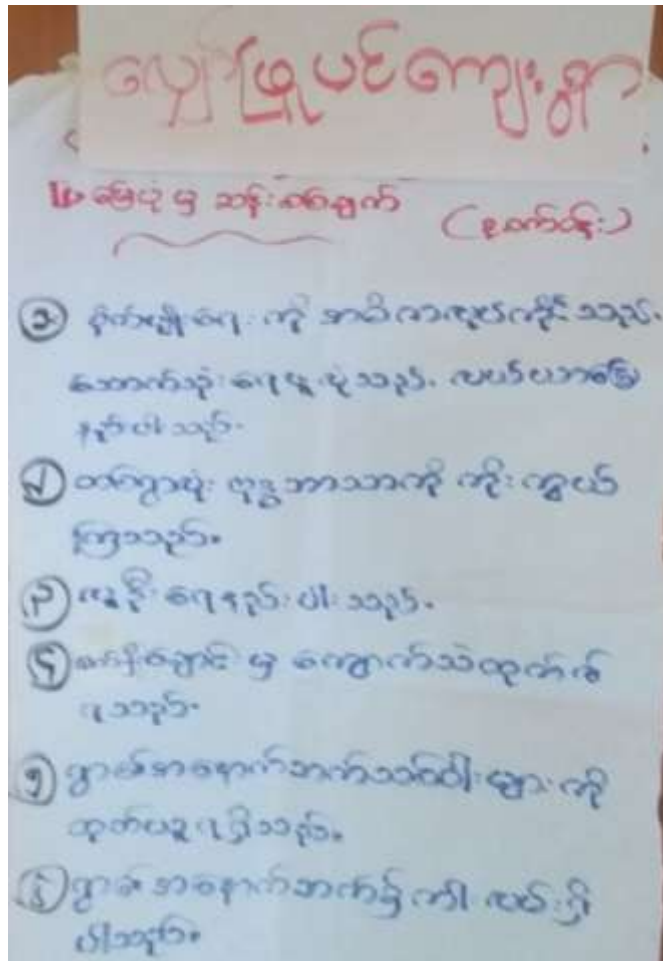 လျှော်ဖြူပင်ကျေးရွာ
မြေပုံမှ ဆန်းစစ်ချက် (ရပ်ဝန်း)
① စိုက်ပျိုးရေး ကို အဓိကလုပ်ကိုင် သည်.
သောက်သုံး ရေရှားပါးသည်. လယ်ယာမြေ
နည်းပါးသည်.
② တစ်ရွာလုံး ဗုဒ္ဓဘာသာကို ကိုးကွယ်
ကြသည်။
③ လူဦးရေနည်းပါးသည်.
④ ချောင်း မှ ကျောက်သဲထုတ်၍
ရသည်.
⑤ ရွာ၏အနောက်ဘက်သစ်ဝါးများ ကို
ထုတ်ယူရရှိသည်။
⑥ ရွာ၏ အနောက်ဘက်၌ ကား လမ်းရှိ
ပါသည်။